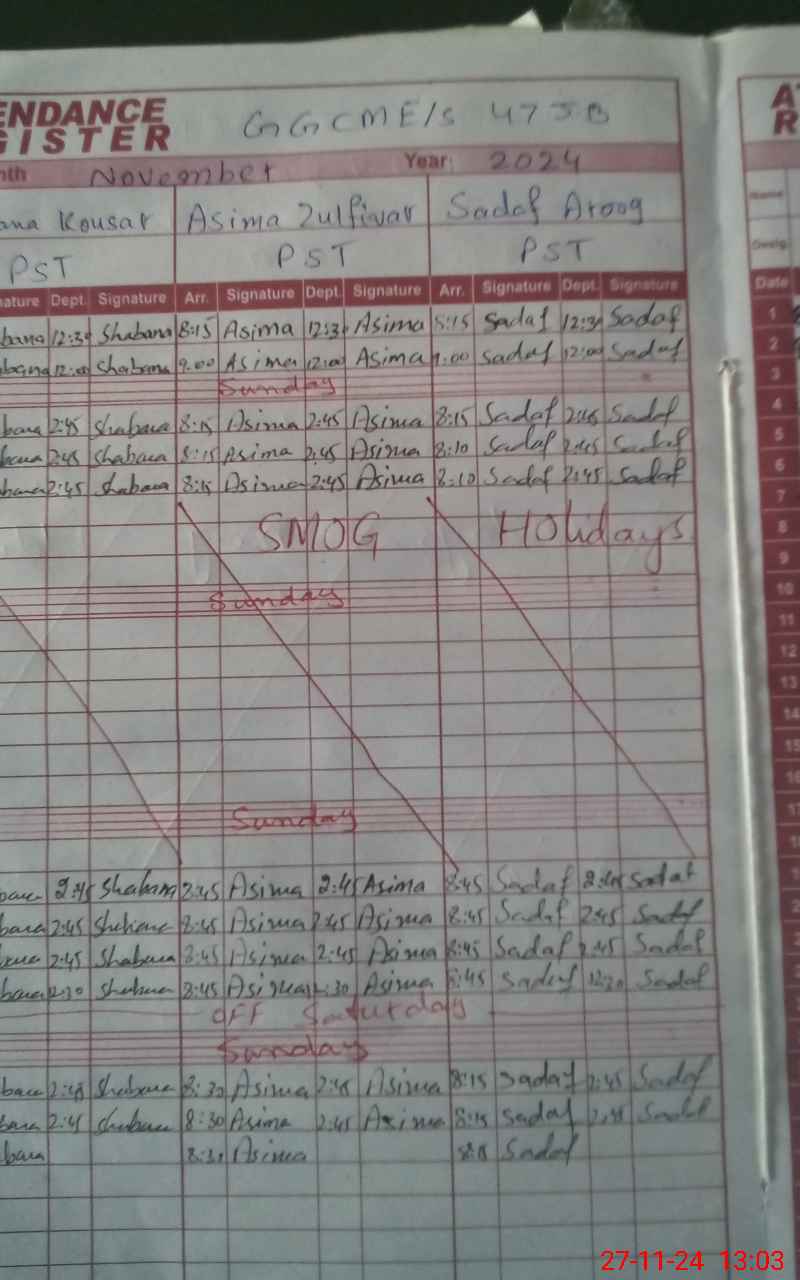 ENDANCE GGCME/S 47 JB
ISTER
nth November Year: 2024
ana Kousar Asima Zulfiqar Sadaf Aroog
PST PST PST
ature Dept. Signature Arr. Signature Dept. Signature Arr. Signature Dept. Signature
bana 12:30 Shabana 8:15 Asima 12:30 Asima 8:15 Sadaf 12:30 Sadaf
bana 12:00 Shabana 9:00 Asima 12:00 Asima 9:00 Sadaf 12:00 Sadaf
Sunday
bana 2:45 Shabana 8:15 Asima 2:45 Asima 8:15 Sadaf 2:45 Sadaf
bana 2:45 Shabana 8:15 Asima 2:45 Asima 8:10 Sadaf 2:45 Sadaf
bana 2:45 Shabana 8:15 Asima 2:45 Asima 8:10 Sadaf 2:45 Sadaf
SMOG Holidays
Sunday
Sunday
2:45 Shabana 8:45 Asima 2:45 Asima 8:45 Sadaf 2:45 Sadaf
bana 2:45 Shabana 8:45 Asima 2:45 Asima 8:45 Sadaf 2:45 Sadaf
2:45 Shabana 8:45 Asima 2:45 Asima 8:45 Sadaf 2:45 Sadaf
bana 12:30 Shabana 8:45 Asima 12:30 Asima 8:45 Sadaf 12:30 Sadaf
OFF Saturday
Sunday
bana 2:45 Shabana 8:30 Asima 2:45 Asima 8:15 Sadaf 2:45 Sadaf
bana 2:45 Shabana 8:30 Asima 2:45 Asima 8:15 Sadaf 2:45 Sadaf
bana 8:30 Asima 8:15 Sadaf
A
R
Name
Desig.
Date
1
2
3
4
5
6
7
8
9
10
11
12
13
14
15
16
17
18
27-11-24 13:03